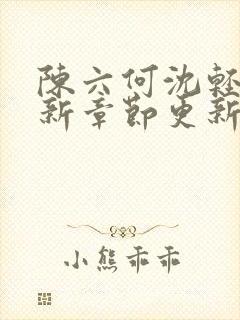 陳六何沈輕
新章節更新
小熊乖乖